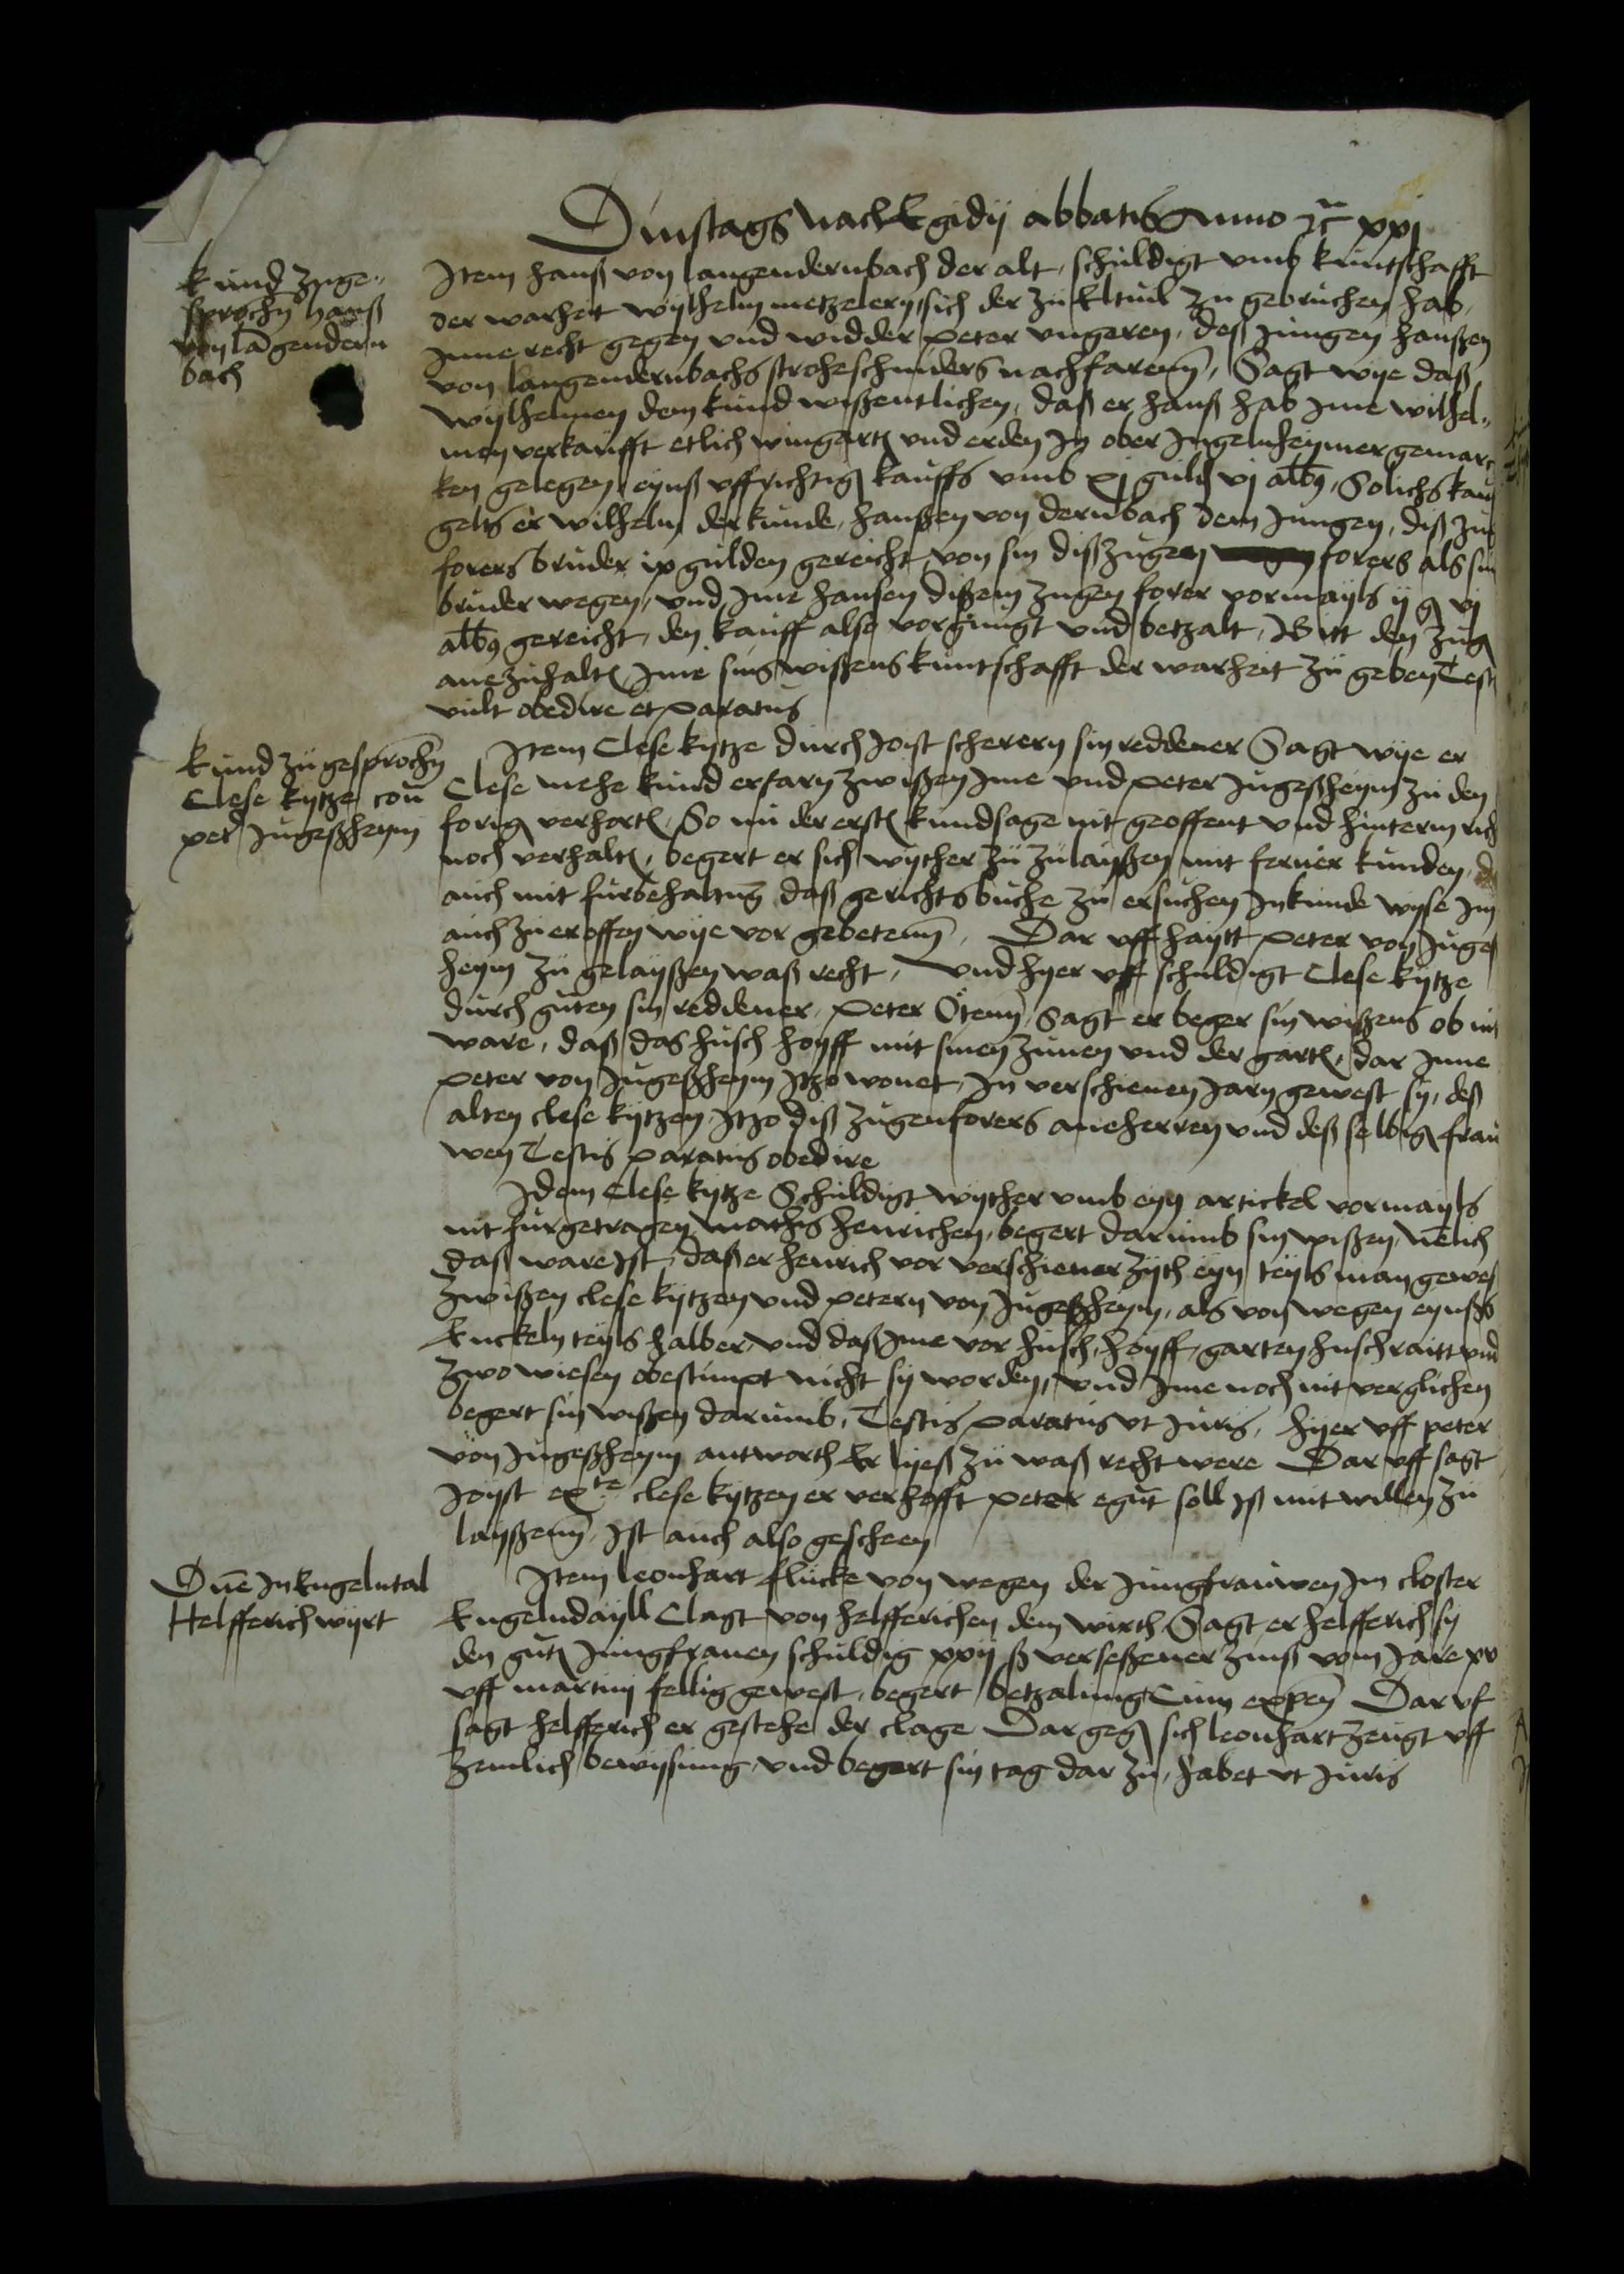 Dinstags nach Egidij abbatis Anno xxj
kund zuge„
sprochn hanß
von lāgendern
bach
Item hanß von langendernbach der alt, schuldigt vmb kuntschafft
der warheit wylhelm metzelern, sich der zu Eltuil zu gebruchen hab,
Inne recht gegen vnd widder peter vngeren, deß Jungen hanßen
von langendernbachs stroheschniders nachfaren, Sagt wye daß
wylhelmen dem kund wißentlichen, daß er hanß hab Ime wilhel„
men verkaufft etlich wingart vnd erden In ober Ingelnheymer gemarc
ken gelegen, eynß vffrichtig kauffs vmb xj guld vj alb9, Solichs kau
gelts er wilhelm der kunde, hanßen von dernbach dem Jungen, diß zu
forers bruder ix gulden gereicht von sin diß zugen forers als sin
bruder wegen, vnd Ime hansen dißem zugen forer vormayls ij g vj
alb9 gereicht, den kauff also vorgnugt vnd betzalt, Bitt den zug
anezuhalt Ime sins wißens kuntschafft der warheit zu geben Test
vult obedire et paratus
kund zu gesprochn
Clese kytze cou
pet Jugeßheym
Item Clese kytze durch Joist scherern sin reddener Sagt wye er
Clese mehe kund erfarn zwißen Ime vnd peter Jugeßheym zu den
forig verhort, So nu der erst kundsage nit geoffent vnd hinterm rich
noch verhalt, begert er sich wyther zu zulayßen mit ferner kunden,
auch mit furbehaltung daß gerichtsbuche zu ersuchen In kunde wyse Im
auch zu eroffen wye vor gebeten, Dar vff haytt peter von Juges
heym zu gelayßen waß recht, Vnd hyer vff schuldigt Clese kytze
durch guten sin reddener, peter Oten, Sagt er beger sin wißens ob nit
ware, daß das husch hoyff mit sinen zunen vnd der gart, dar Inne
peter von Jugeßheym Itzo wonet, In verschienen Jarn gewest sy, deß
alten clese kytzen, Itzo diß zugenforers aneherren vnd deß selbig frau
wen Testis paratus obedire
Idem Clese kytze Schuldigt wyther vmb eyn artickel vormayls
nit furgetragen Mathis henrichen, begert darumb sin wißen, nēlich
daß ware Ist, daß er henrich vor verschiener zyth eyn teyls man gewes
zwißen clese kytzen vnd petern von Jugeßheym, als von wegen eynßs
Enckeln teyls halber, vnd daß Ime vor husch, hoyff, garten huschraitt vnd
zwo wiesen obestimpt nicht sy worden, vnd Ime noch nit verglichen
begert sin wißen darumb, Testis paratus vt Juris, hyer vff peter
von Jugeßheym antworth Er lyeß zu waß recht were Dar vff sagt
Joyst ex te clese kytzen er verhofft peter egnt soll Iß mit willen zu
layßen, Ist auch also gescheen
Dnē In Engelntal
Helfferich wyrt
Item leonhart flucke von wegen der Jungfrauwen Im closter
Engelndayll Clagt von helfferichen dem wirth, Sagt er helfferich sy
den gut Jungfrauen schuldig xxij ß verseßener zinß vom Jare xv
vff martinj fellig gewest, begert betzalung Cum expen Dar vf
sagt helfferich er gestehe der clage Dar geg sich leonhart zeugt vff
zemlich bewyssung vnd begert sin tag dar zu, habet vt Juris